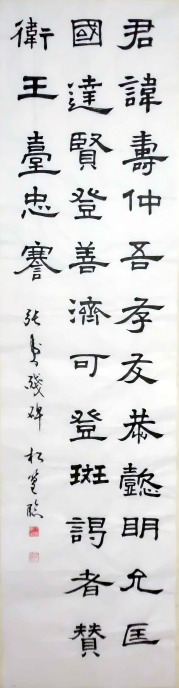 君諱壽仲吾孝友恭懿明允匡
國達賢登善濟可登斑謁者贊
衛王臺忠謇
張壽殘碑 松䓘臨